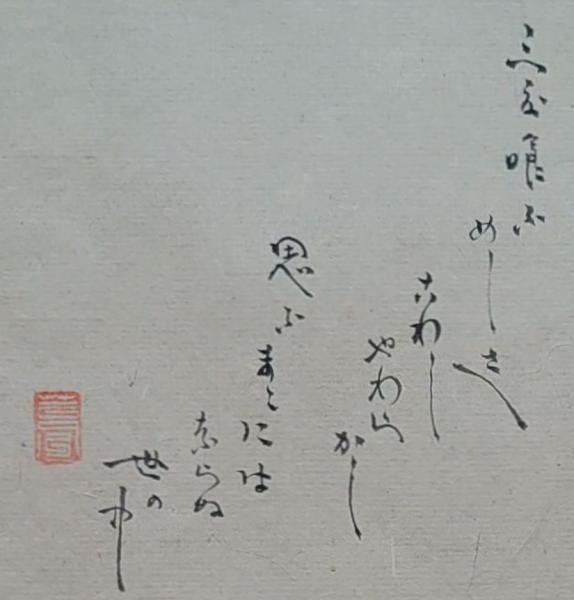 三度喰ふ
めしさへ
こわし
やわら
かし
思ふまゝには
ならぬ
世の中